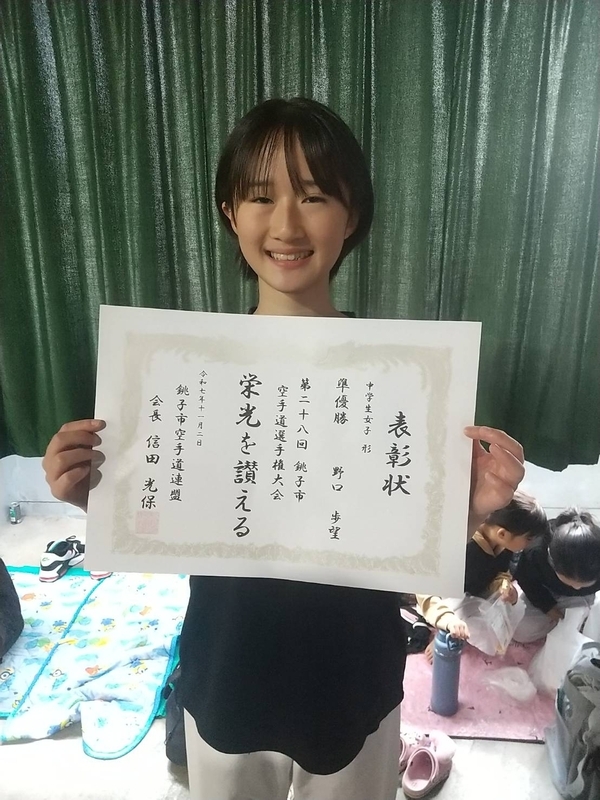 表彰状
中学生女子 形
準優勝 野口 歩望
第二十八回 銚子市
空手道選手権大会
栄光を讃える
令和七年十一月二日
銚子市空手道連盟
会長 信田 光保